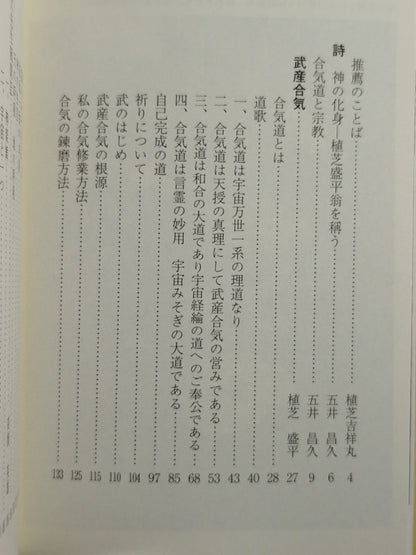 推薦のことば……植芝吉祥丸 4
詩 神の化身―植芝盛平翁を稱う……五井 昌久 6
合気道と宗教……五井 昌久 9
武産合気……植芝 盛平 27
合気道とは……28
道歌……40
一、合気道は宇宙万世一系の理道なり……43
二、合気道は天授の真理にして武産合気の営みである……53
三、合気道は和合の大道であり宇宙経綸の道へのご奉公である……68
四、合気道は言霊の妙用 宇宙みそぎの大道である……85
自己完成の道……97
祈りについて……104
武のはじめ……110
武産合気の根源……115
私の合気修業方法……125
合気の錬磨方法……133